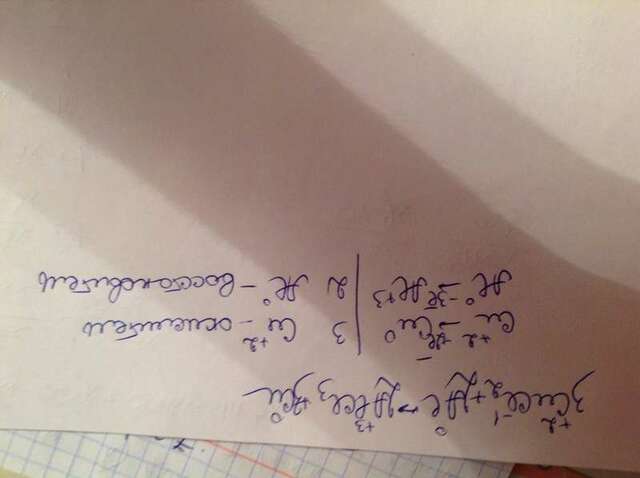 3Cu⁺²Cl₂⁻¹ + 2Al⁰ → 2Al⁺³Cl₃ + 3Cu⁰
Cu⁺² +2ē → Cu⁰ | 3 Cu⁺² - окислитель
Al⁰ -3ē → Al+3 | 2 Al⁰ - восстановитель